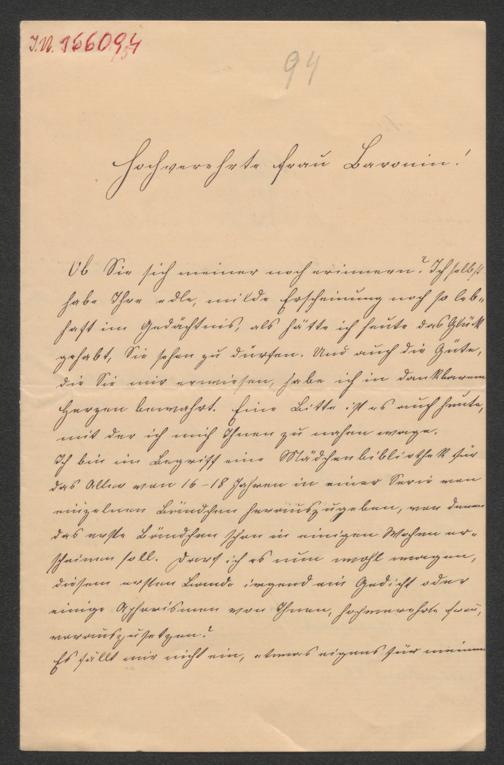 I.N. 166094
94
Hochverehrte Frau Baronin!
Ob Sie sich meiner noch erinnern? Ich selbst
habe Ihre edle, milde Erscheinung noch so leb-
haft im Gedächtnis, als hätte ich heute das Glück
gehabt, Sie sehen zu dürfen. Und auch die Güte,
die Sie mir erwiesen, habe ich in dankbarem
Herzen bewahrt. Eine Bitte ist es auch heute,
mit der ich mich Ihnen zu nahen wage.
Ich bin im Begriff eine Mädchenbibliothek für
das Alter von 16-18 Jahren in einer Serie von
einzelnen Bändchen herauszugeben, von denen
das erste Bändchen schon in einigen Wochen er-
scheinen soll. Darf ich es nun wohl wagen,
diesem ersten Bande irgend ein Gedicht oder
einige Aphorismen von Ihnen, hochverehrte Frau,
vorauszusetzen?
Es fällt mir nicht ein, etwas eigens für meinen